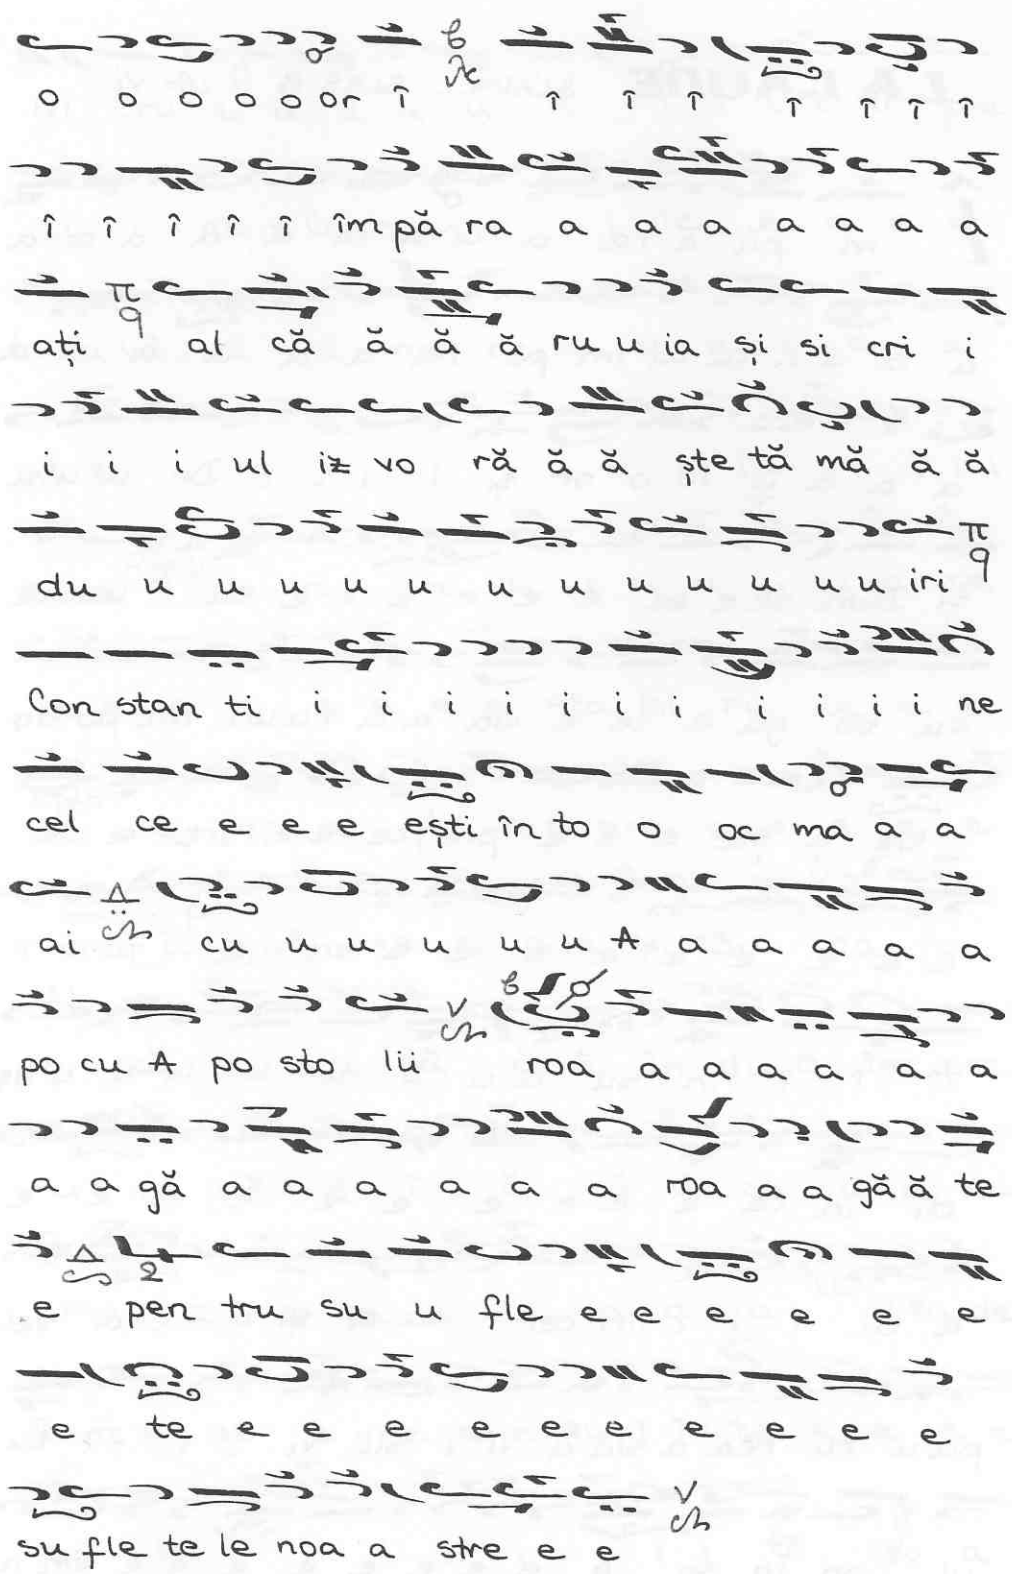 o o o o o or î î î î î î î î
î î î î î îm pă ra a a a a a a a
ați al că ă ă ă ru u ia și si cri i
i i i ul iz vo ră ă ă ște tă mă ă ă
du u u u u u u u u u u u u iri
Con stan ti i i i i i i i i i i i ne
cel ce e e e ești în to o oc ma a a
ai cu u u u u u A a a a a a
po cu A po sto lii roa a a a a a a
a a gă a a a a a a roa a a gă ă te
e pen tru su u fle e e e e e e
e te e e e e e e e e e e
su fle te le noa a stre e e